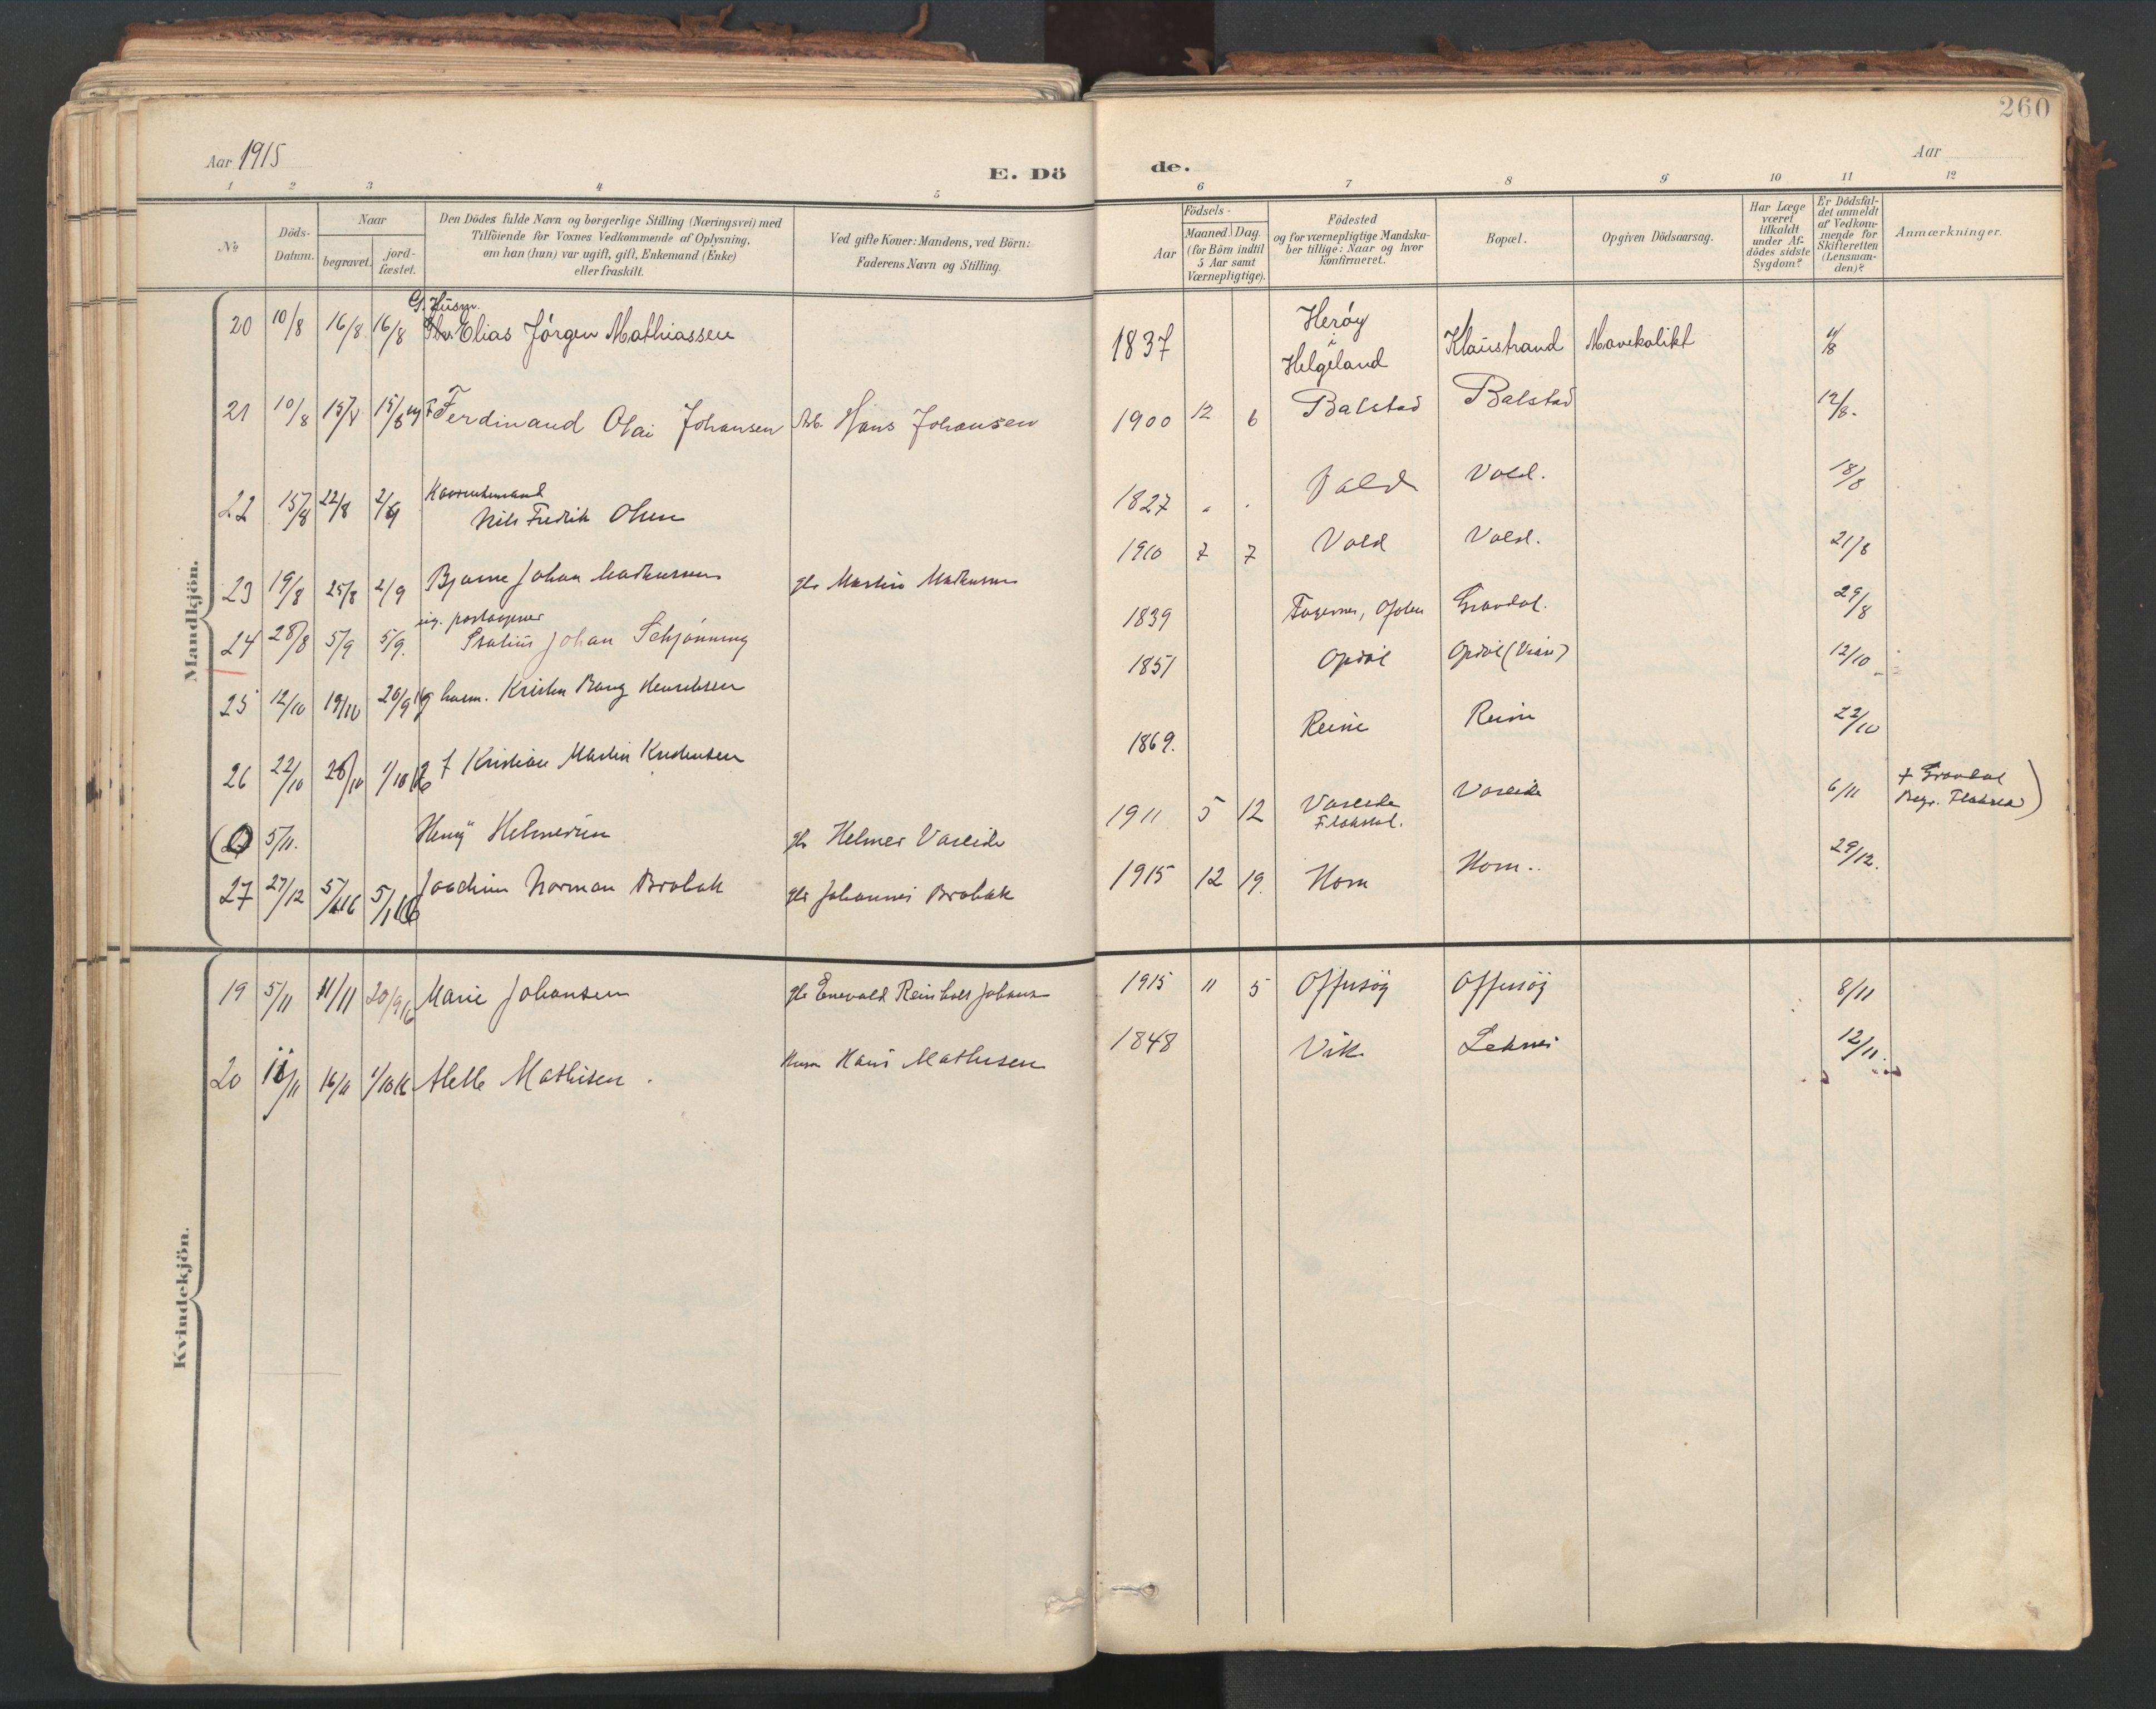 260
Aar 1915
E. Dö de.
Aar
1 2 3 4 5 6 7 8 9 10 11 12
No
Döds-Datum.
Naar
begravet.
jord-fæstet.
Den Dödes fulde Navn og borgerlige Stilling (Næringsvei) med
Tilföiende for Voxnes Vedkommende af Oplysning,
om han (hun) var ugift, gift, Enkemand (Enke)
eller fraskilt.
Ved gifte Koner: Mandens, ved Börn:
Faderens Navn og Stilling.
Födsels-
Aar
Maaned. Dag.
(for Börn indtil
5 Aar samt
Værnepligtige).
Födested
og for værnepligtige Mandska-
ber tillige: Naar og hvor
konfirmeret.
Bopæl.
Opgiven Dödsaarsag.
Har Læge
været
tilkaldt
under Af-
dödes sidste
Sygdom?
Er Dödsfal-
det anmeldt
af Vedkom-
mende for
Skifteretten
(Lensman-
den)?
Anmærkninger.
Mandkjön.
G. Husm.
20 10/8 16/8 16/8 Elias Jörgen Mathiassen 1837 Heröy i Helgeland Klaustrand Mavekolikt 11/8
21 10/8 15/8 15/8 ug F Ferdinand Olai Johansen Arb. Hans Johansen 1900 12 6 Balstad Balstad 12/8.
Kaarenkemand
22 15/8 22/8 2/9 Nils Fredrik Olsen 1827 Vold Vold. 18/8
23 19/8 25/8 2/9 Bjarne Johan Markussen gbr Martin Markussen 1910 7 7 Vold Vold. 21/8
ug. postaapner
24 28/8 5/9 5/9. Johan Schjönning 1839 Fagernes, Ofoten Gravdal. 29/8
25 12/10 19/10 20/9 16 g husm. Kristen Bang Henriksen 1851 Opdöl Opdöl 12/10
26 22/10 28/10 1/10 16 F Kristian Martin Kristensen 1869. Reine Reine 22/10
5/11. Henry Helmersen gbr Helmer Vareide 1911 5 12 Vareide Flakstad. Vareide 6/11 † Gravdal Begr. Flakstad)
27 27/12 5/1 16 5/1 16 Joachim Norman Brobak gbr Johannes Brobak 1915 12 19. Horn Horn. 29/12.
Kvindekjön.
19 5/11 11/11 20/9 16 Marie Johansen gbr Enevald Reinholt Johans 1915 11 5 Offersöy Offersöy 8/11
20 11/11 16/11 1/10 16 Alette Mathisen. Husm Hans Mathisen 1848 Vik Leknes 12/11.